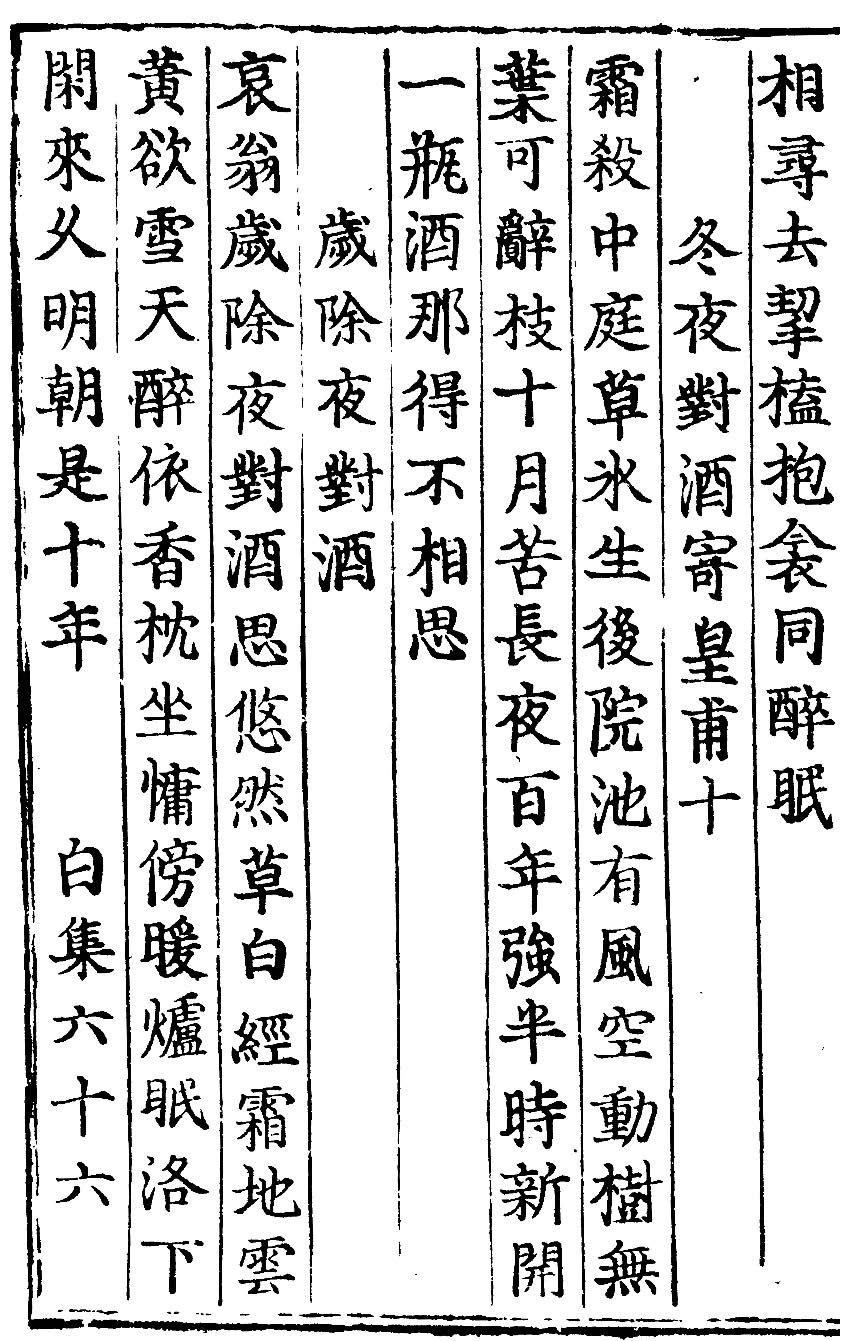 相尋去挈榼抱衾同醉眠
冬夜對酒寄皇甫十
霜殺中庭草氷生後院池有風空動樹無
葉可辭枝十月苦長夜百年強半時新開
一瓶酒那得不相思
歲除夜對酒
哀翁歲除夜對酒思悠然草白經霜地雲
黃欲雪天醉依香枕坐慵傍暖爐眠洛下
閑來乆明朝是十年　白集六十六